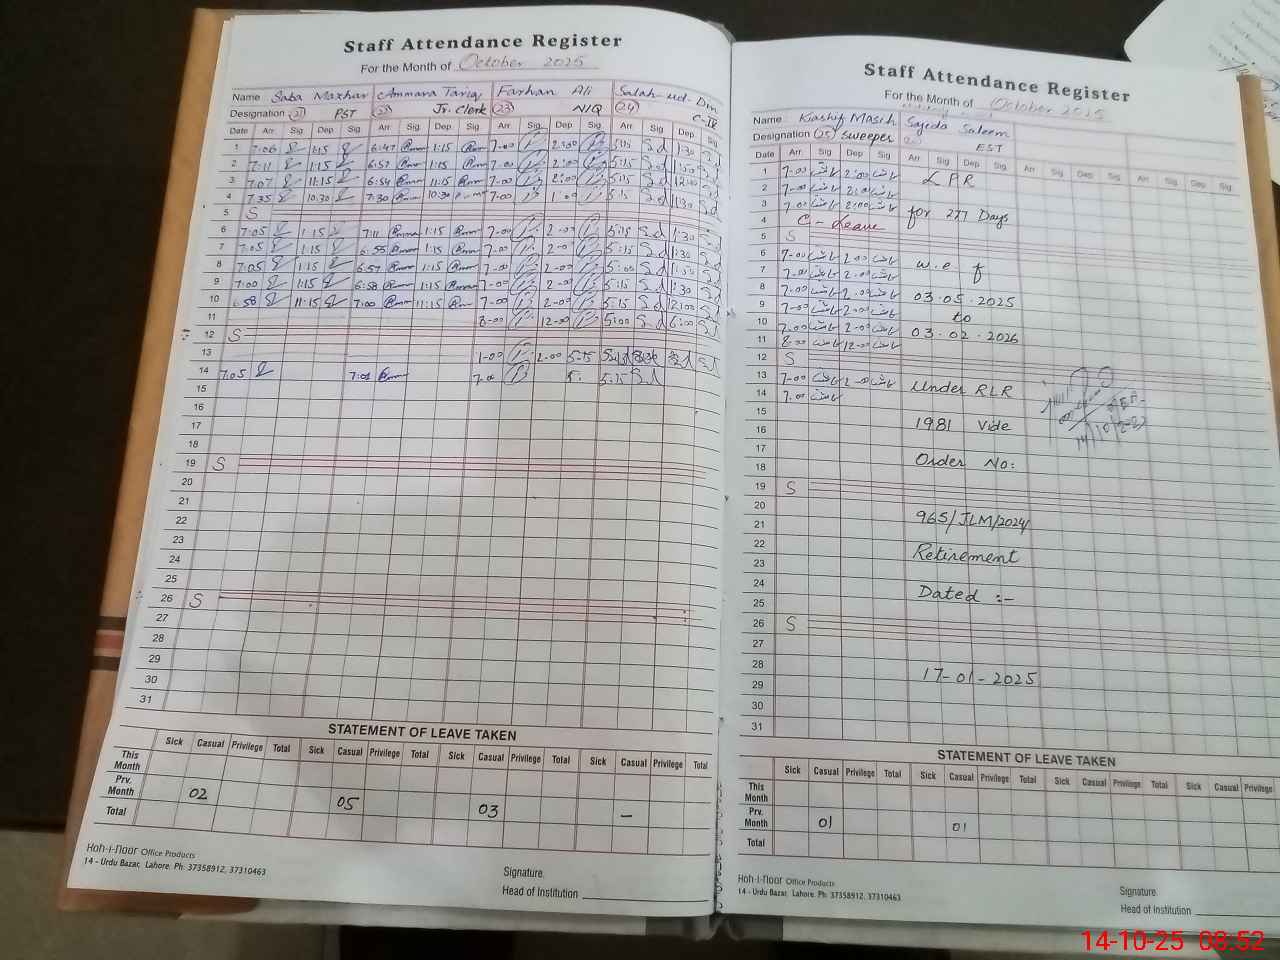 Staff Attendance Register
For the Month of October 2025
Name Saba Mazhar Ammara Tariq Farhan Ali Salah-ud-Din
Designation (21) PST (22) Jr. Clerk (23) N/Q (24) C-IV
Date Arr Sig Dep Sig Arr Sig Dep Sig Arr Sig Dep Sig Arr Sig Dep Sig
1 7:06 1:15 6:47 1:15 7-00 2:00 5:15 1:30
2 7:11 1:15 6:57 1:15 7-00 2:00 5:15 1:30
3 7:07 11:15 6:54 11:15 7-00 2:00 5:15 12:00
4 7:35 10:30 7:30 10:30 7-00 5:15 11:30
5 S
6 7:05 1:15 7:11 1:15 7-00 2-00 5:15 1:30
7 7:05 1:15 6:55 1:15 7-00 2-00 5:15 1:30
8 7:05 1:15 6:57 1:15 7-00 2-00 5:00 1:30
9 7:00 1:15 6:58 1:15 7-00 2-00 5:15 1:30
10 6:58 11:15 7:00 11:15 7-00 2-00 5:15 12:00
11 8-00 12-00 5:00 6:00
12 S
13 2-00 5:15
14 7:05 7:01 7-00 5:15
15
16
17
18
19 S
20
21
22
23
24
25
26 S
27
28
29
30
31
STATEMENT OF LEAVE TAKEN
Sick Casual Privilege Total Sick Casual Privilege Total Sick Casual Privilege Total Sick Casual Privilege Total
This Month
Prv. Month 02 05 03 –
Total
Hoh-i-noor Office Products
14 - Urdu Bazar, Lahore. Ph: 37358912, 37310463
Signature.
Head of Institution
Staff Attendance Register
For the Month of October 2025
Name: Kiashif Masih Sajeda Saleem
Designation (25) Sweeper EST
Date Arr Sig Dep Sig Arr Sig Dep Sig Arr Sig Dep Sig Arr Sig Dep Sig
1 7-00 2:00 LPR
2 7-00 2:00
3 7-00 2:00 for 277 Days
4 C-Leave
5 S
6 7-00 2-00 w.e f
7 7-00 2-00
8 7-00 2-00 03.05.2025
9 7-00 2-00 to
10 7-00 2-00 03.02.2026
11 8-00 12-00
12 S
13 7-00 2-00 Under RLR
14 7-00
15 1981 Vide
16
17 Order No:
18
19 S
20 965/JLM/2024
21
22 Retirement
23
24 Dated :-
25
26 S
27
28 17-01-2025
29
30
31
STATEMENT OF LEAVE TAKEN
Sick Casual Privilege Total Sick Casual Privilege Total Sick Casual Privilege Total Sick Casual Privilege
This Month
Prv. Month 01 01
Total
Hoh-i-noor Office Products
14 - Urdu Bazar, Lahore. Ph: 37358912, 37310463
Signature
Head of Institution
14-10-25 08:52